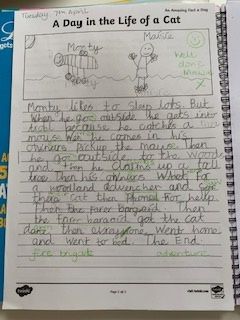 Tuesday 7th April
An Amazing Fact a Day
A Day in the Life of a Cat
Monty
Maisie
Well
done
Maisie
x
Monty likes to sleep lots. But
When he goes outside he gets into
because he catches a
mouse. When he comes in his
owners pick up the mouse. Then
he go outside to the woods
and then he climbs up a tall
tree. Then his owners went for
a woodland advencher and saw
there cat then phoned for help.
Then the farer bargard Then
the farer baragard got the cat
down then went home
and went to bed. The End.
fire brigade
adventure
twinkl
Page 1 of 1
visit twinkl.com